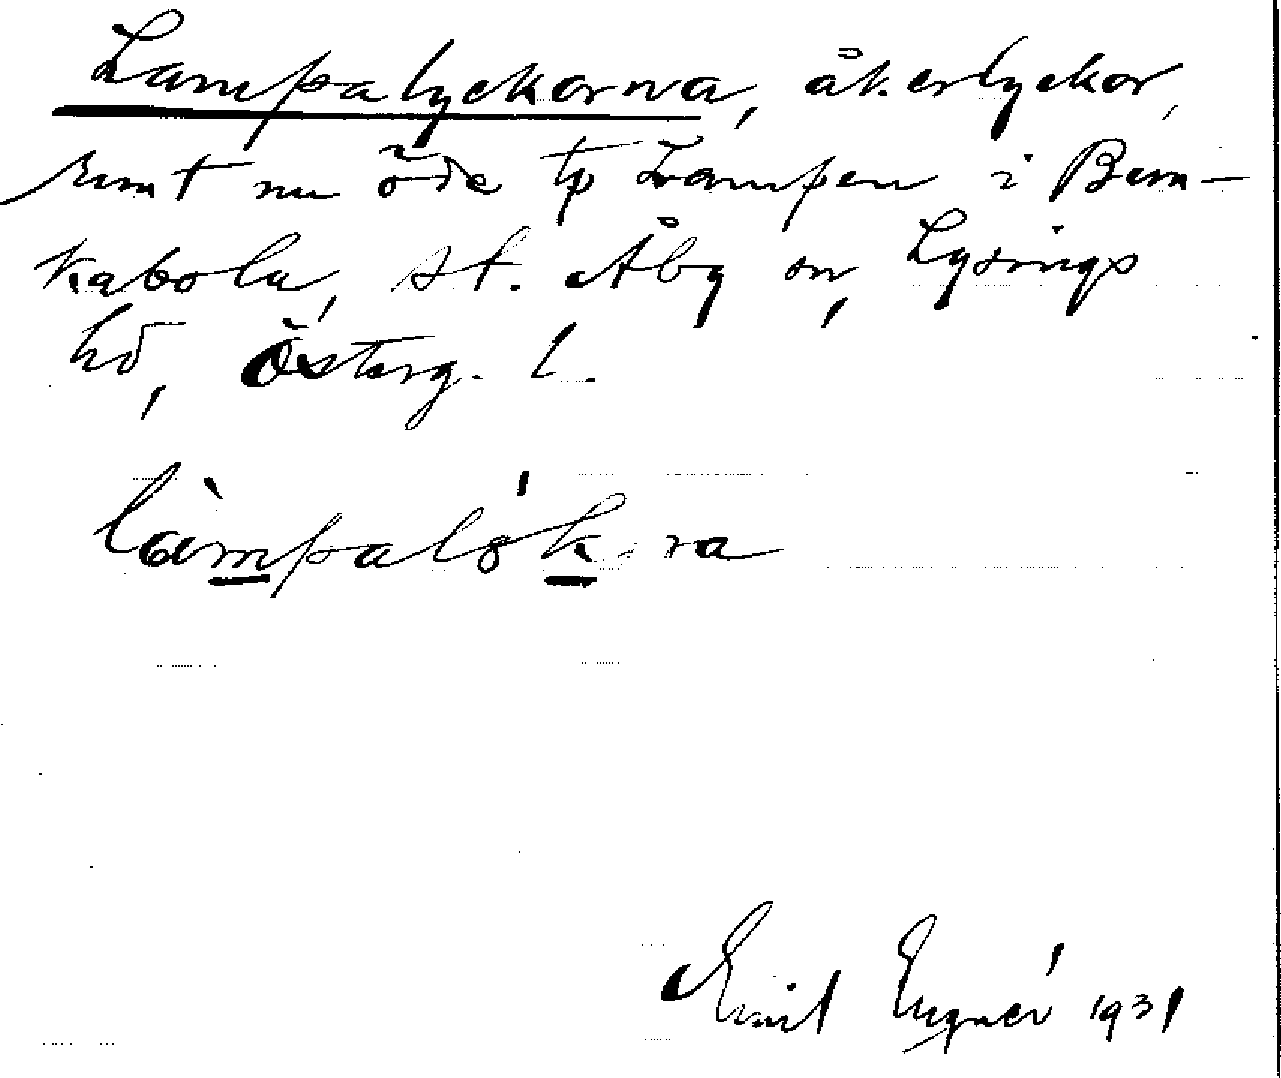 Lampalyckorna, åkerlyckor,
runt nu öde tp Lampen i Bum-
kabola, st. Åby sn, Lysings
hd, Österg. l.
làmpalókra
Emil Engnér 1931